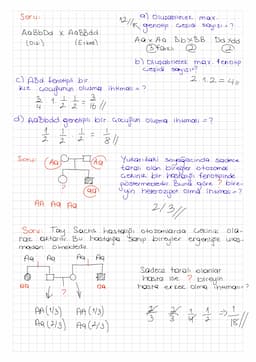 Soru:
AaBbDd x AaBBdd
(Dişi) (Erkek)
a) Oluşabilecek max. genotip çeşidi sayısı = ?
12//
Aa x Aa Bb x BB Dd x dd
3 2 2
b) Oluşabilecek max. fenotip çeşidi sayısı = ?
2 . 1 . 2 = 4//
c) ABd fenotipli bir
kız çocuğunun oluşma ihtimali = ?
3/4 . 1 . 1/2 . 1/2 = 3/16//
d) AaBbdd bir çocuğun oluşma ihtimali = ?
1/2 . 1/2 . 1/2 = 1/8//
Soru:
Aa Aa
aa
?
AA Aa Aa
Yukarıdaki soyağacında sadece
taralı olan bireyler otozomal
çekinik bir hastalığı fenotipinde
göstermektedir. Buna göre ? bire-
yin heterozigot olma ihtimali = ?
2/3//
Soru: Tay Sachs hastalığı otozomlarda çekinik ola-
rak aktarılır. Bu hastalığa sahip bireyler ergenliğe ulaş-
madan ölmektedir.
Aa Aa Aa Aa
aa aa
?
AA (1/3) AA (1/3)
Aa (2/3) Aa (2/3)
Sadece taralı olanlar
hasta ise ? bireyin
hasta erkek olma ihtimali = ?
2/3 . 2/3 . 1/4 . 1/2 ⇒ 1/18//